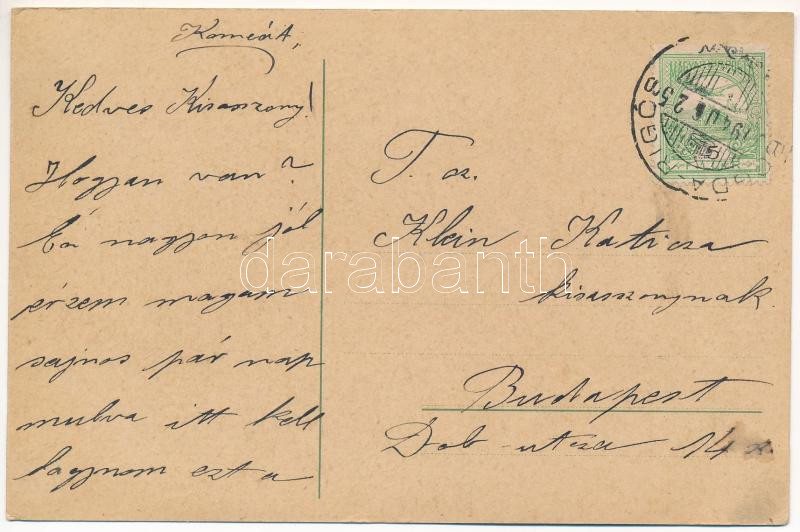 Komédt,
Kedves Kisasszony!
Hogyan van?
Én nagyon jól
érzem magam
sajnos pár nap
mulva itt kell
hagynom ezt a
T. cz.
Klein Katicza
kisasszonynak.
Budapest
Dob-utcza 14
darabanth